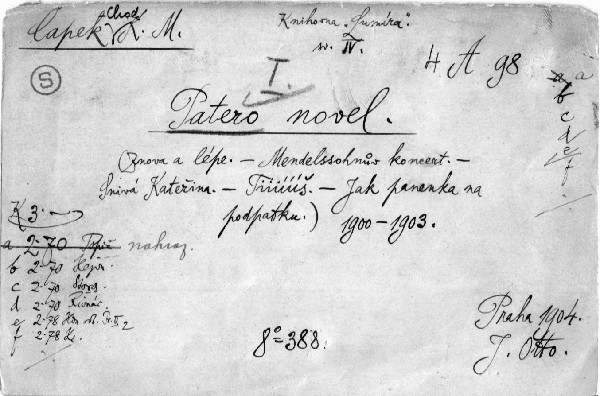 Čapek Chod K. M.
Knihovna „Lumíra“.
sv. 2
IV.
S
I.
4 A 98
a
a
b
c
d
e
f
Patero novel.
(Znova a lépe. – Mendelssohnův koncert. –
Snivá Kateřina. – Tiiiiiš. – Jak panenka na
podpatku.) 1900–1903.
K 3.
a 2-70 nahraz.
b 2-70
c 2-70
d 2-70
e 2-78
f 2-78
8° – 388.
Praha 1904.
J. Otto.